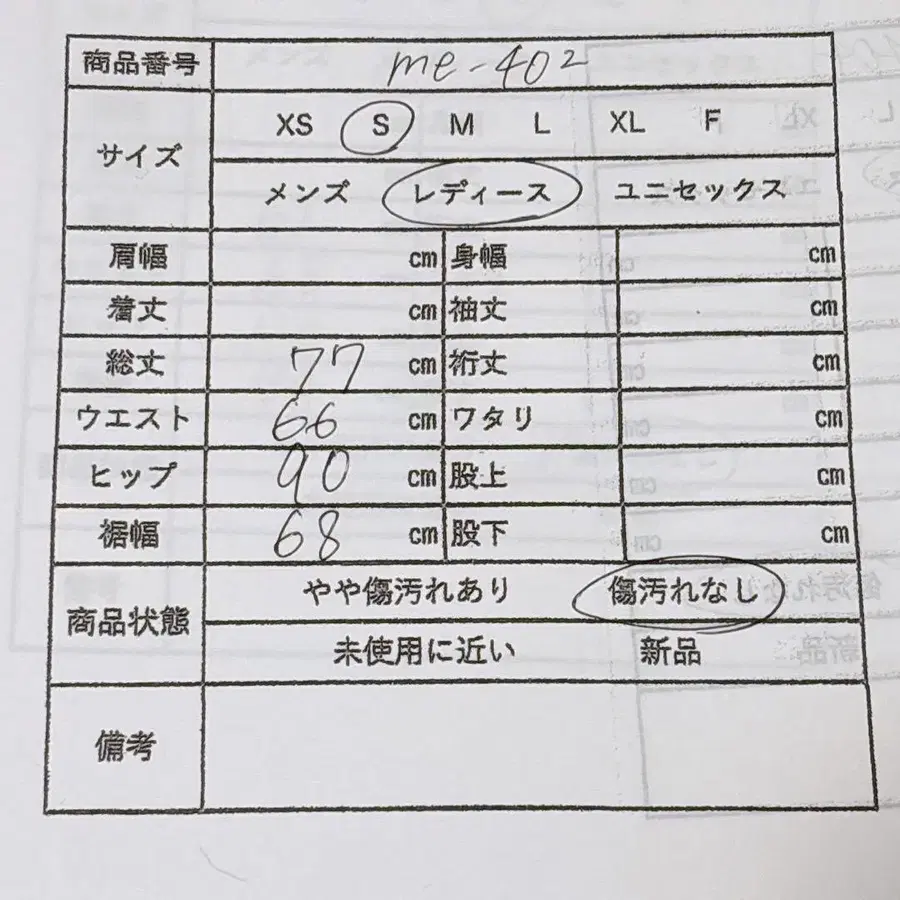 商品番号 me-402
サイズ XS S M L XL F
メンズ レディース ユニセックス
肩幅 cm 身幅 cm
着丈 cm 袖丈 cm
総丈 77 cm 裄丈 cm
ウエスト 66 cm ワタリ cm
ヒップ 90 cm 股上 cm
裾幅 68 cm 股下 cm
商品状態 やや傷汚れあり 傷汚れなし
未使用に近い 新品
備考